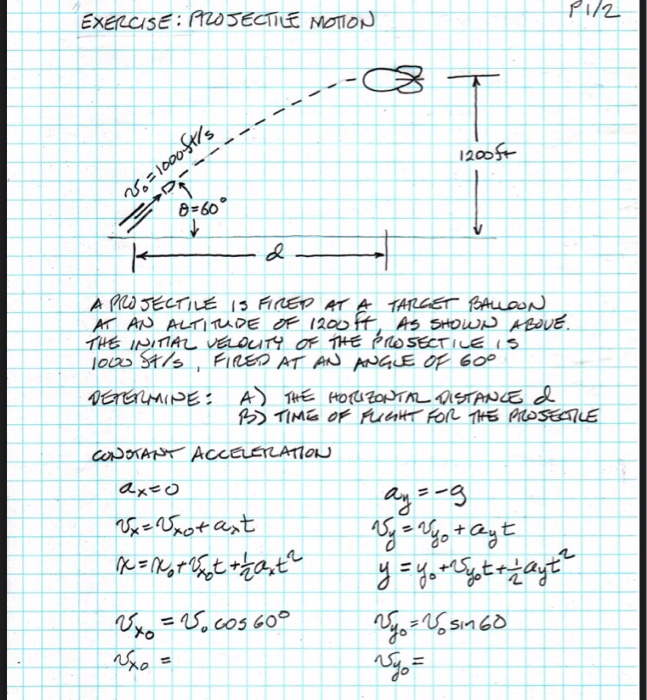 EXERCISE: PROJECTILE MOTION
P1/2
v₀=1000 ft/s
1200 ft
θ=60°
d
A PROJECTILE IS FIRED AT A TARGET BALLOON
AT AN ALTITUDE OF 1200 ft, AS SHOWN ABOVE.
THE INITIAL VELOCITY OF THE PROJECTILE IS
1000 ft/s, FIRED AT AN ANGLE OF 60°
DETERMINE: A) THE HORIZONTAL DISTANCE d
B) TIME OF FLIGHT FOR THE PROJECTILE
CONSTANT ACCELERATION
aₓ=0
a_y = -g
vₓ = vₓ₀ + aₓt
v_y = v_y₀ + a_yt
x = x₀ + vₓ₀t + ½aₓt²
y = y₀ + v_y₀t + ½a_yt²
vₓ₀ = v₀ cos 60°
v_y₀ = v₀ sin 60
vₓ₀ =
v_y₀ =